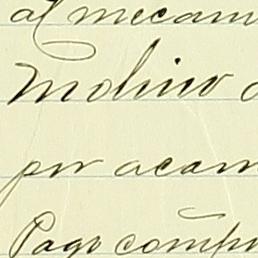 al mecan
Molino d
por acarr
Pago compo